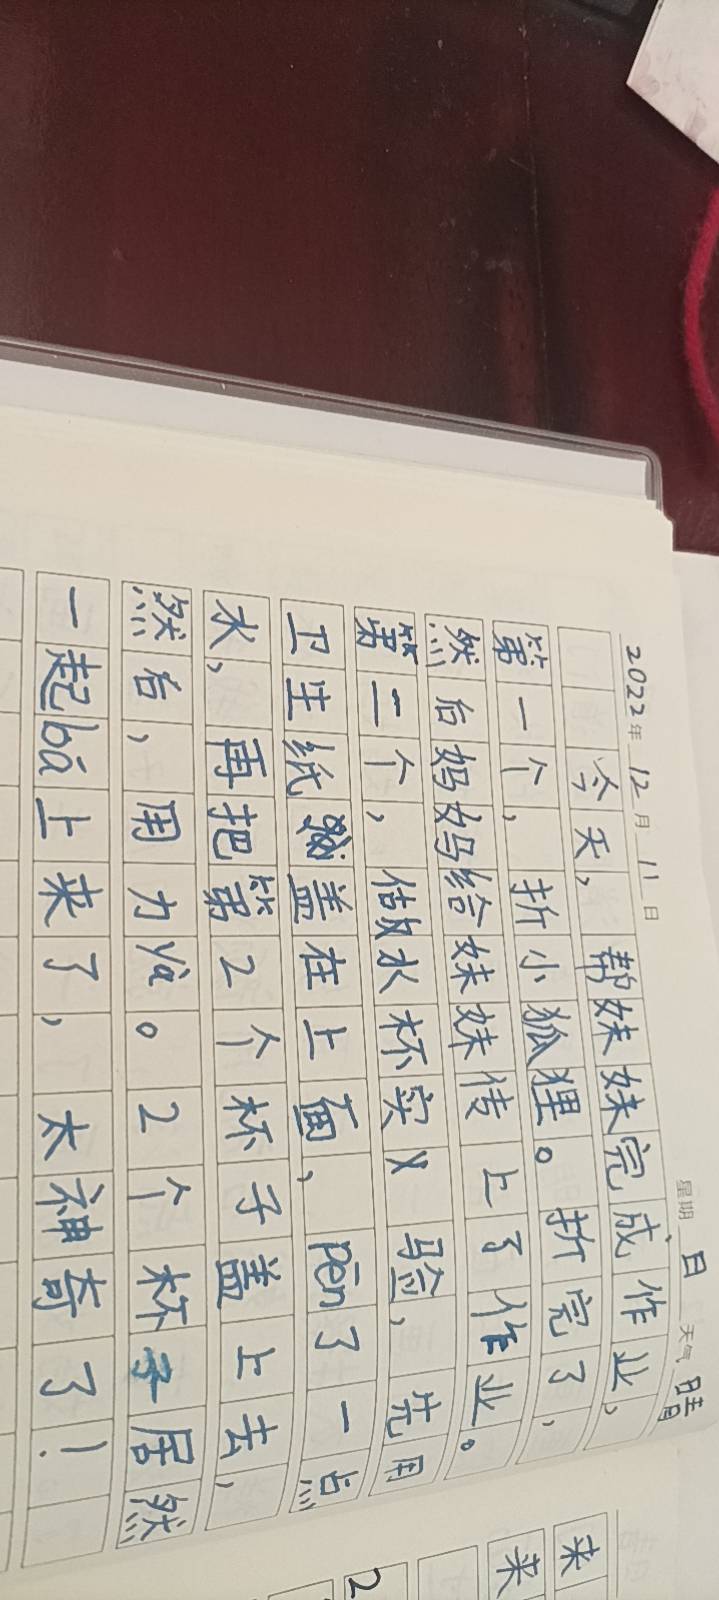 2022年12月11日 星期日 天气晴
今天，帮妹妹完成作业，
第一个，折小狐狸。折完了，
然后妈妈给妹妹传上了作业。
第二个，做水杯实验，先用
卫生纸盖在上面，pēn了一点
水，再把第2个杯子盖上去，
然后，用力yà。2个杯子居然
一起bá上来了，太神奇了！
来
来
2